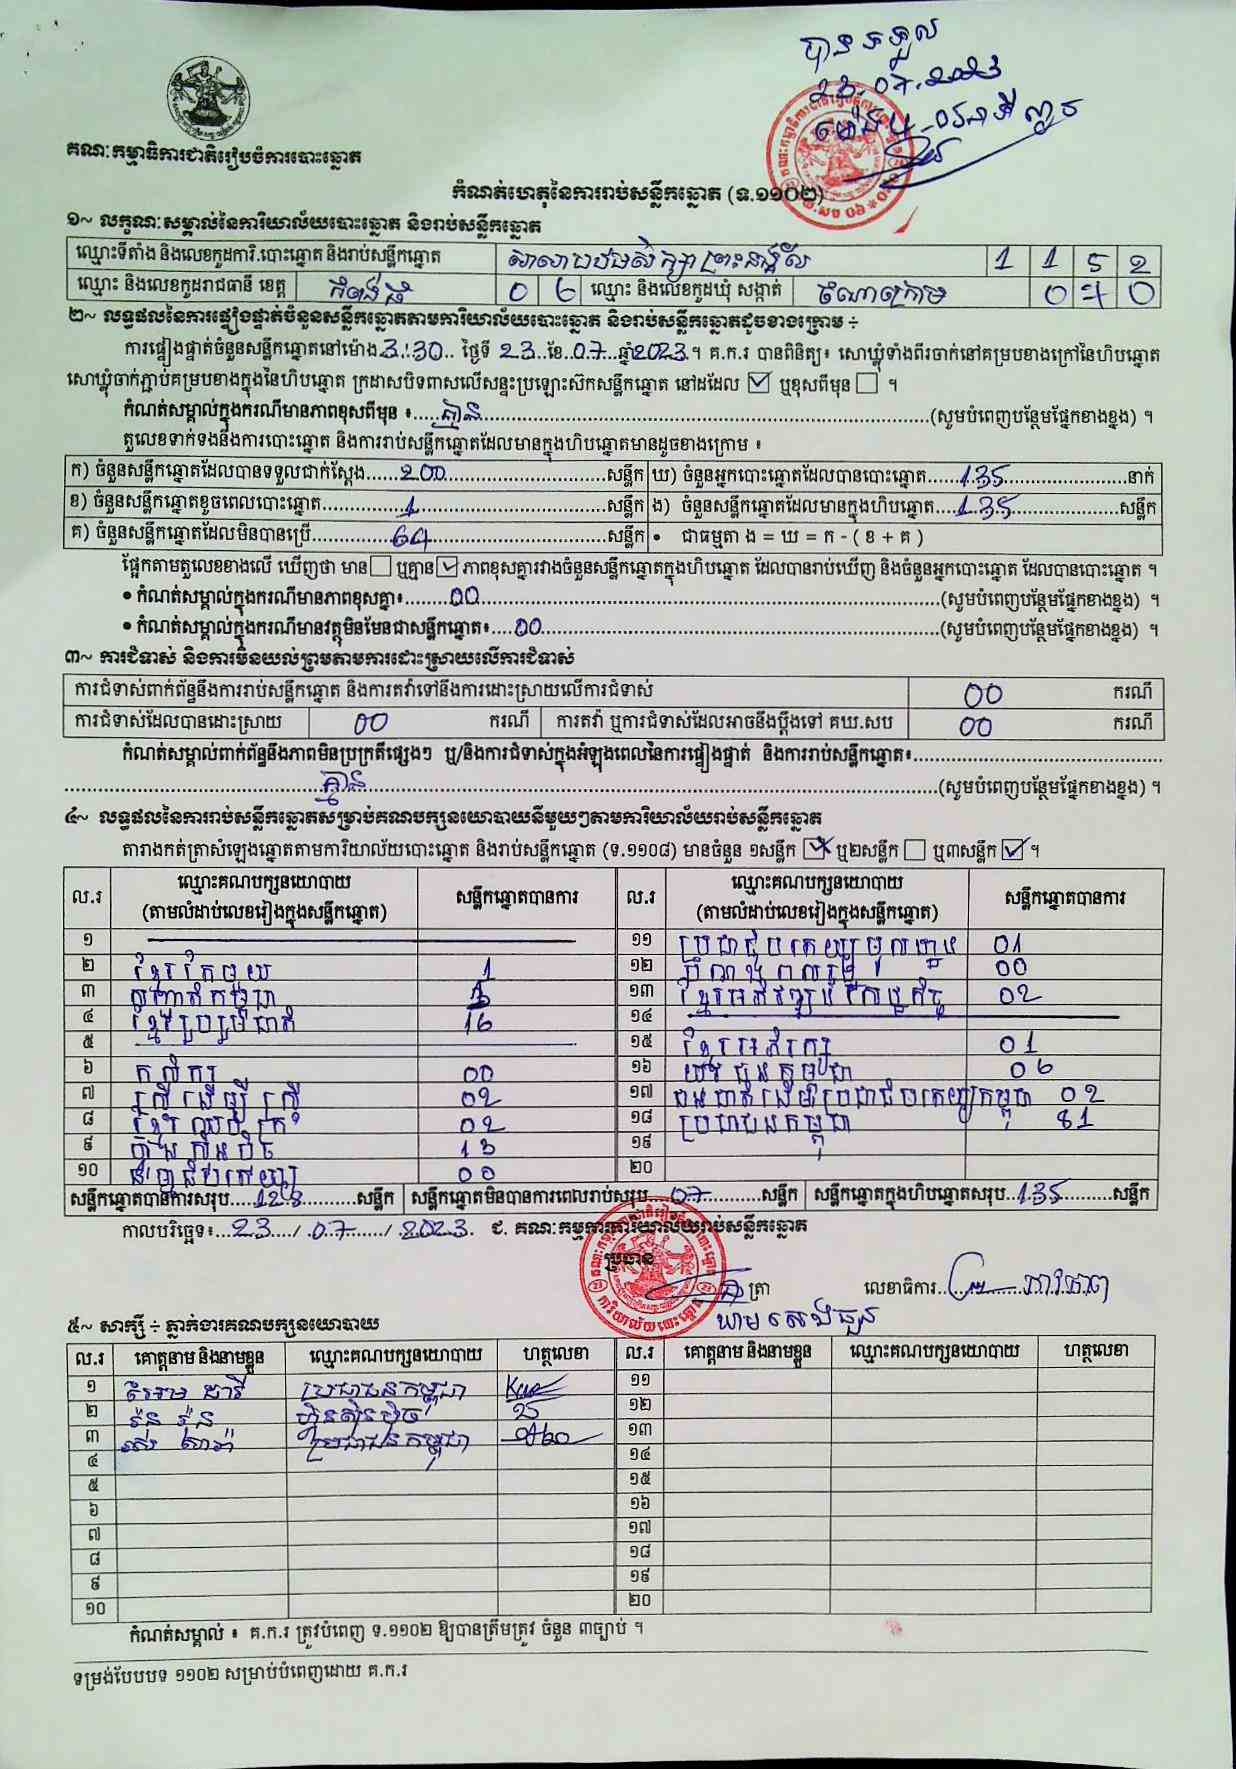 បានទទួល
23.07.2023
គណៈកម្មាធិការជាតិរៀបចំការបោះឆ្នោត
កំណត់ហេតុនៃការរាប់សន្លឹកឆ្នោត (ទ.១១០២)
១~ លក្ខណៈសម្គាល់នៃការិយាល័យបោះឆ្នោត និងរាប់សន្លឹកឆ្នោត
ឈ្មោះទីតាំង និងលេខកូដការិ.បោះឆ្នោត និងរាប់សន្លឹកឆ្នោត សាលាបឋមសិក្សាព្រះនង្គ័ល 1 1 5 2
ឈ្មោះ និងលេខកូដរាជធានី ខេត្ត កំពង់ធំ 0 6 ឈ្មោះ និងលេខកូដឃុំ សង្កាត់ 0 7 0
២~ លទ្ធផលនៃការផ្ទៀងផ្ទាត់ចំនួនសន្លឹកឆ្នោតតាមការិយាល័យបោះឆ្នោត និងរាប់សន្លឹកឆ្នោតដូចខាងក្រោម ÷
ការផ្ទៀងផ្ទាត់ចំនួនសន្លឹកឆ្នោតនៅម៉ោង 3:30 ថ្ងៃទី 23 ខែ 07 ឆ្នាំ 2023 ។ គ.ក.រ បានពិនិត្យ៖ សោឃ្លុំទាំងពីរចាក់នៅគម្របខាងក្រៅនៃហិបឆ្នោត
សោឃ្លុំចាក់ភ្ជាប់គម្របខាងក្នុងនៃហិបឆ្នោត ក្រដាសបិទពាសលើសន្ទះប្រឡោះស៊កសន្លឹកឆ្នោត នៅដដែល ☑ ឬខុសពីមុន ☐ ។
កំណត់សម្គាល់ក្នុងករណីមានភាពខុសពីមុន ៖ គ្មាន (សូមបំពេញបន្ថែមផ្នែកខាងខ្នង) ។
តួលេខទាក់ទងនឹងការបោះឆ្នោត និងការរាប់សន្លឹកឆ្នោតដែលមានក្នុងហិបឆ្នោតមានដូចខាងក្រោម ៖
ក) ចំនួនសន្លឹកឆ្នោតដែលបានទទួលជាក់ស្តែង 200 សន្លឹក ឃ) ចំនួនអ្នកបោះឆ្នោតដែលបានបោះឆ្នោត 135 នាក់
ខ) ចំនួនសន្លឹកឆ្នោតខូចពេលបោះឆ្នោត 1 សន្លឹក ង) ចំនួនសន្លឹកឆ្នោតដែលមានក្នុងហិបឆ្នោត 135 សន្លឹក
គ) ចំនួនសន្លឹកឆ្នោតដែលមិនបានប្រើ 64 សន្លឹក • ជាធម្មតា ង = ឃ = ក - ( ខ + គ )
ផ្អែកតាមតួលេខខាងលើ ឃើញថា មាន ☐ ឬគ្មាន ☑ ភាពខុសគ្នារវាងចំនួនសន្លឹកឆ្នោតក្នុងហិបឆ្នោត ដែលបានរាប់ឃើញ និងចំនួនអ្នកបោះឆ្នោត ដែលបានបោះឆ្នោត ។
• កំណត់សម្គាល់ក្នុងករណីមានភាពខុសគ្នា៖ 00 (សូមបំពេញបន្ថែមផ្នែកខាងខ្នង) ។
• កំណត់សម្គាល់ក្នុងករណីមានវត្ថុមិនមែនជាសន្លឹកឆ្នោត៖ 00 (សូមបំពេញបន្ថែមផ្នែកខាងខ្នង) ។
៣~ ការជំទាស់ និងការមិនយល់ព្រមតាមការដោះស្រាយលើការជំទាស់
ការជំទាស់ពាក់ព័ន្ធនឹងការរាប់សន្លឹកឆ្នោត និងការតវ៉ាទៅនឹងការដោះស្រាយលើការជំទាស់ 00 ករណី
ការជំទាស់ដែលបានដោះស្រាយ 00 ករណី ការតវ៉ា ឬការជំទាស់ដែលអាចនឹងប្តឹងទៅ គឃ.សប 00 ករណី
កំណត់សម្គាល់ពាក់ព័ន្ធនឹងភាពមិនប្រក្រតីផ្សេងៗ ឬ/និងការជំទាស់ក្នុងអំឡុងពេលនៃការផ្ទៀងផ្ទាត់ និងការរាប់សន្លឹកឆ្នោត៖
គ្មាន (សូមបំពេញបន្ថែមផ្នែកខាងខ្នង) ។
៤~ លទ្ធផលនៃការរាប់សន្លឹកឆ្នោតសម្រាប់គណបក្សនយោបាយនីមួយៗតាមការិយាល័យរាប់សន្លឹកឆ្នោត
តារាងកត់ត្រាសំឡេងឆ្នោតតាមការិយាល័យបោះឆ្នោត និងរាប់សន្លឹកឆ្នោត (ទ.១១០៨) មានចំនួន ១សន្លឹក ឬ២សន្លឹក ☐ ឬ៣សន្លឹក ☑ ។
ល.រ ឈ្មោះគណបក្សនយោបាយ (តាមលំដាប់លេខរៀងក្នុងសន្លឹកឆ្នោត) សន្លឹកឆ្នោតបានការ ល.រ ឈ្មោះគណបក្សនយោបាយ (តាមលំដាប់លេខរៀងក្នុងសន្លឹកឆ្នោត) សន្លឹកឆ្នោតបានការ
១ ១១ 01
២ ខ្មែរតែមួយ 1 ១២ 00
៣ ១៣ 02
៤ ខ្មែររួបរួមជាតិ 16 ១៤
៥ ១៥ ខ្មែរអភិរក្ស 01
៦ កសិករ 00 ១៦ យុវជនកម្ពុជា 06
៧ ស្ត្រីដើម្បីស្ត្រី 02 ១៧ 02
៨ 02 ១៨ ប្រជាជនកម្ពុជា 81
៩ ហ៊្វុនស៊ិនប៉ិច 13 ១៩
១០ 00 ២០
សន្លឹកឆ្នោតបានការសរុប 128 សន្លឹក សន្លឹកឆ្នោតមិនបានការពេលរាប់សរុប 07 សន្លឹក សន្លឹកឆ្នោតក្នុងហិបឆ្នោតសរុប 135 សន្លឹក
កាលបរិច្ឆេទ៖ 23 / 07 / 2023 ជ. គណៈកម្មការការិយាល័យរាប់សន្លឹកឆ្នោត
ប្រធាន ត្រា លេខាធិការ
៥~ សាក្សី ÷ ភ្នាក់ងារគណបក្សនយោបាយ
ល.រ គោត្តនាម និងនាមខ្លួន ឈ្មោះគណបក្សនយោបាយ ហត្ថលេខា ល.រ គោត្តនាម និងនាមខ្លួន ឈ្មោះគណបក្សនយោបាយ ហត្ថលេខា
១ ប្រជាជនកម្ពុជា ១១
២ ហ៊្វុនស៊ិនប៉ិច ១២
៣ ប្រជាជនកម្ពុជា ១៣
៤ ១៤
៥ ១៥
៦ ១៦
៧ ១៧
៨ ១៨
៩ ១៩
១០ ២០
កំណត់សម្គាល់ ៖ គ.ក.រ ត្រូវបំពេញ ទ.១១០២ ឱ្យបានត្រឹមត្រូវ ចំនួន ៣ច្បាប់ ។
ទម្រង់បែបបទ ១១០២ សម្រាប់បំពេញដោយ គ.ក.រ